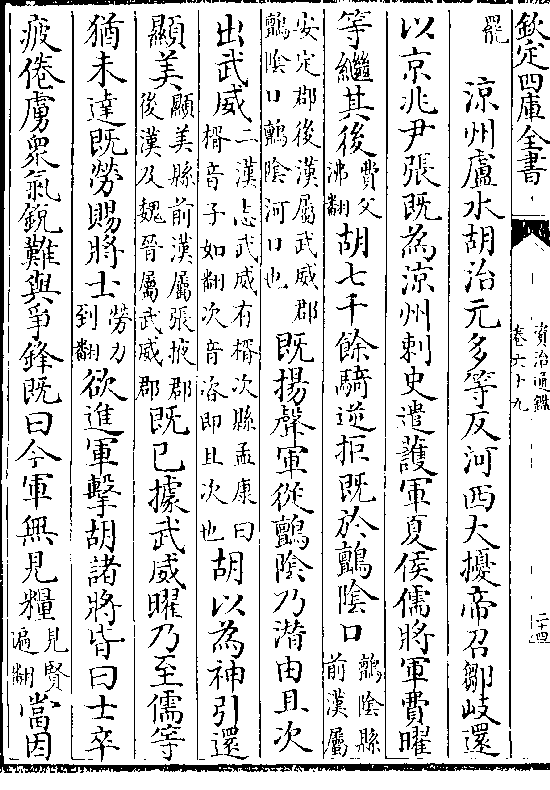 欽定四庫全書
資治通鑑
卷六十九
二十四
罷
涼州盧水胡治元多等反河西大擾帝召鄒岐還
以京兆尹張既為涼州刺史遣護軍夏侯儒將軍費曜
等繼其後費父沸翻胡七千餘騎逆拒既於鸇陰口鸇陰縣前漢屬
安定郡後漢屬武威郡鸇陰口鸇陰河口也既揚聲軍從鸇陰乃潛由且次
出武威二漢志武威有揟次縣孟康曰揟音子如翻次音咨即且次也胡以為神引還
顯美顯美縣前漢屬張掖郡後漢及魏晉屬武威郡既已據武威曜乃至儒等
猶未達既勞賜將士勞力到翻欲進軍擊胡諸將皆曰士卒
疲倦虜衆氣銳難與爭鋒既曰今軍無見糧見賢遍翻當因